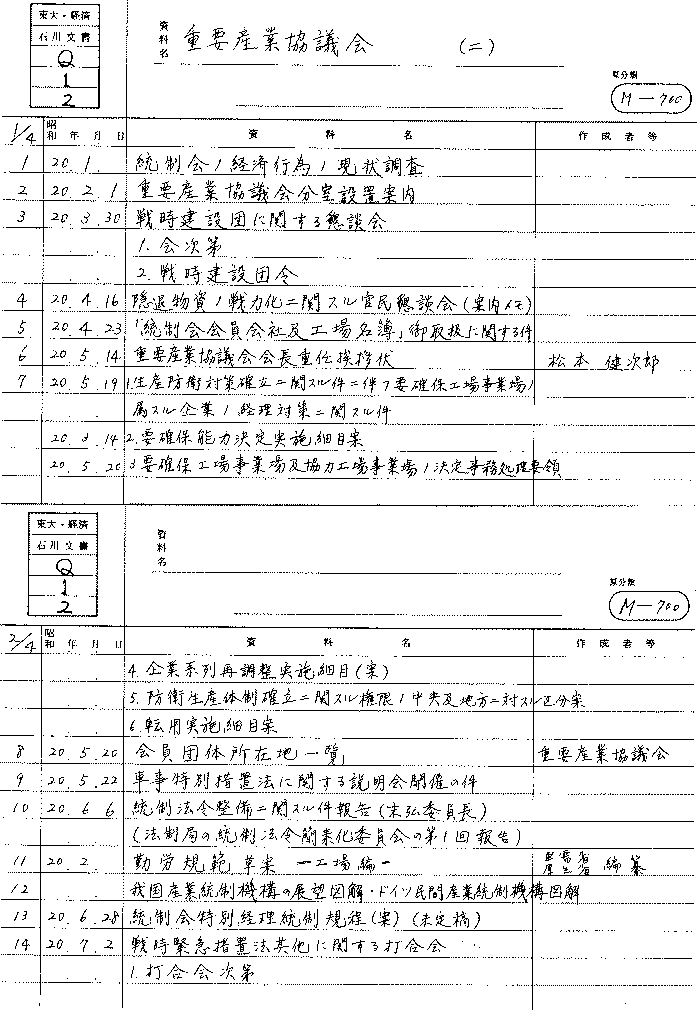 東大・経済
石川文書
Q
1
2
資料名 重要産業協議会 (二)
原分類
M-700
1/4 昭和 年 月 日 資 料 名 作 成 者 等
1 20. 1. 統制会ノ経済行為ノ現状調査
2 20. 2. 1 重要産業協議会分室設置案内
3 20. 3. 30 戦時建設団に関する懇談会
1. 会次第
2. 戦時建設団令
4 20. 4. 16 隠退物資ノ戦力化ニ関スル官民懇談会(案内メモ)
5 20. 4. 23 「統制会会員会社及工場名簿」御取扱に関する件
6 20. 5. 14 重要産業協議会会長重任挨拶状 松本健次郎
7 20. 5. 19 1.生産防衛対策確立ニ関スル件ニ伴フ要確保工場事業場ノ
属スル企業ノ経理対策ニ関スル件
20. 3. 14 2.要確保能力決定実施細目案
20. 5. 20 3要確保工場事業場及協力工場事業場ノ決定事務処理要領
東大・経済
石川文書
Q
1
2
資料名
原分類
M-700
2/4 昭和 年 月 日 資 料 名 作 成 者 等
4. 企業系列再調整実施細目(案)
5. 防衛生産体制確立ニ関スル権限ノ中央及地方ニ対スル区分案
6. 転用実施細目案
8 20. 5. 20 会員団体所在地一覧 重要産業協議会
9 20. 5. 22 軍事特別措置法に関する説明会開催の件
10 20. 6 6 統制法令整備ニ関スル件報告(末弘委員長)
(法制局の統制法令簡素化委員会の第1回報告)
11 20. 2. 勤労規範草案 ー工場編ー 軍需省 厚生省 編纂
12 我国産業統制機構の展望図解・ドイツ民間産業統制機構図解
13 20. 6. 28 統制会特別経理統制規程(案)(未定稿)
14 20. 7. 2 戦時緊急措置法其他に関する打合会
1. 打合会次第